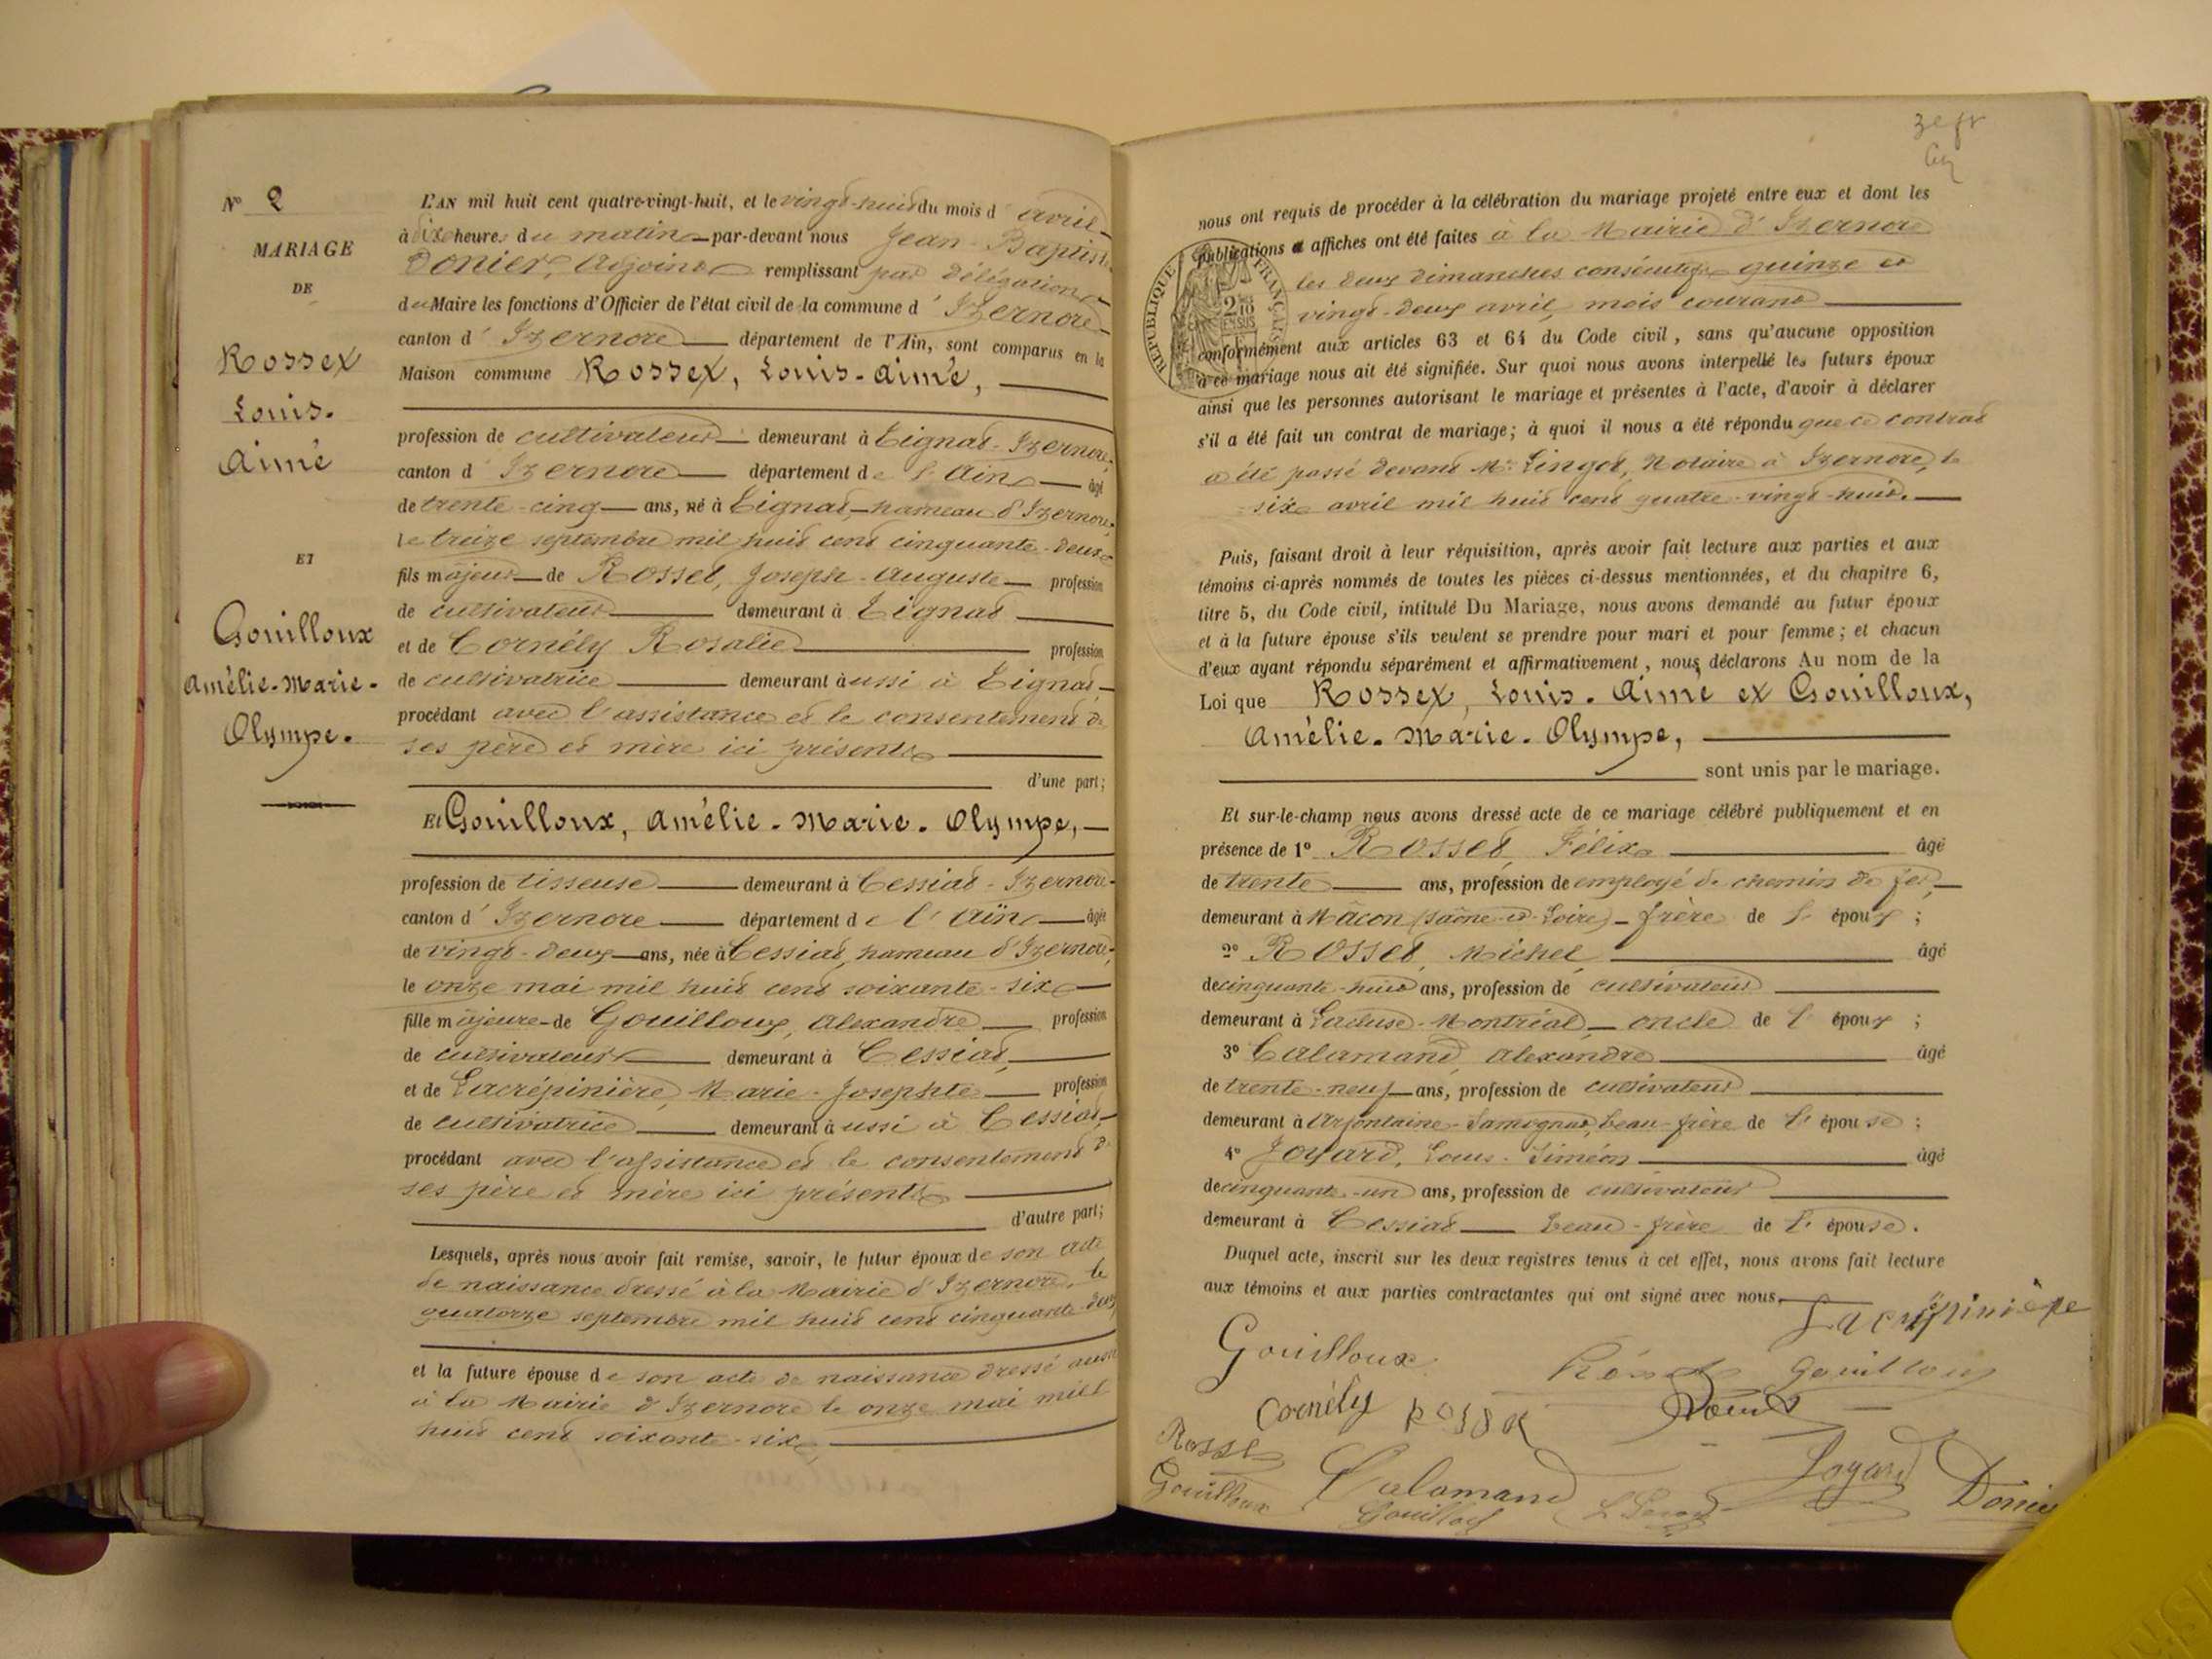 N° 2
MARIAGE
DE
Rosset
Louis-
Aimé
ET
Gouilloux
Amélie-Marie-
Olympe.
L'AN mil huit cent quatre-vingt-huit, et le vingt-huit du mois d'avril
à dix heures du matin par-devant nous Jean-Baptiste
Donier, Adjoint remplissant par délégation
du Maire les fonctions d'Officier de l'état civil de la commune d'Izernore
canton d'Izernore département de l'Ain, sont comparus en la
Maison commune Rosset, Louis-Aimé,
profession de cultivateur demeurant à Tignat-Izernore,
canton d'Izernore département de l'Ain âgé
de trente-cinq ans, né à Tignat, hameau d'Izernore,
le treize septembre mil huit cent cinquante-deux
fils majeur de Rosset, Joseph-Auguste profession
de cultivateur demeurant à Tignat
et de Cornély Rosalie profession
de cultivatrice demeurant aussi à Tignat,
procédant avec l'assistance et le consentement de
ses père et mère ici présents
d'une part;
Et Gouilloux, Amélie-Marie-Olympe,
profession de tisseuse demeurant à Cessiat-Izernore
canton d'Izernore département de l'Ain âgée
de vingt-deux ans, née à Cessiat, hameau d'Izernore,
le onze mai mil huit cent soixante-six
fille majeure de Gouilloux, Alexandre profession
de cultivateur demeurant à Cessiat,
et de Lacrépinière, Marie-Josephte profession
de cultivatrice demeurant aussi à Cessiat,
procédant avec l'assistance et le consentement de
ses père et mère ici présents
d'autre part;
Lesquels, après nous avoir fait remise, savoir, le futur époux de son acte
de naissance dressé à la Mairie d'Izernore, le
quatorze septembre mil huit cent cinquante-deux
et la future épouse de son acte de naissance dressé aussi
à la Mairie d'Izernore le onze mai mil
huit cent soixante-six,
nous ont requis de procéder à la célébration du mariage projeté entre eux et dont les
publications et affiches ont été faites à la Mairie d'Izernore
les deux dimanches consécutifs quinze et
vingt-deux avril, mois courant
RÉPUBLIQUE FRANÇAISE
conformément aux articles 63 et 64 du Code civil, sans qu'aucune opposition
à ce mariage nous ait été signifiée. Sur quoi nous avons interpellé les futurs époux
ainsi que les personnes autorisant le mariage et présentes à l'acte, d'avoir à déclarer
s'il a été fait un contrat de mariage; à quoi il nous a été répondu que ce contrat
a été passé devant Me Lingot, Notaire à Izernore, le
six avril mil huit cent quatre-vingt-huit.
Puis, faisant droit à leur réquisition, après avoir fait lecture aux parties et aux
témoins ci-après nommés de toutes les pièces ci-dessus mentionnées, et du chapitre 6,
titre 5, du Code civil, intitulé Du Mariage, nous avons demandé au futur époux
et à la future épouse s'ils veulent se prendre pour mari et pour femme; et chacun
d'eux ayant répondu séparément et affirmativement, nous déclarons Au nom de la
Loi que Rosset, Louis-Aimé et Gouilloux,
Amélie-Marie-Olympe,
sont unis par le mariage.
Et sur-le-champ nous avons dressé acte de ce mariage célébré publiquement et en
présence de 1° Rosset, Félix âgé
de trente ans, profession de employé de chemin de fer,
demeurant à Mâcon (Saône-et-Loire) frère de l'époux;
2° Rosset, Michel âgé
de cinquante-huit ans, profession de cultivateur
demeurant à Lacluse-Montréal oncle de l'époux;
3° Calamand, Alexandre âgé
de trente-neuf ans, profession de cultivateur
demeurant à Arfontaine-Samognat, beau-frère de l'épouse;
4° Joyard, Louis-Siméon âgé
de cinquante-un ans, profession de cultivateur
demeurant à Cessiat beau-frère de l'épouse.
Duquel acte, inscrit sur les deux registres tenus à cet effet, nous avons fait lecture
aux témoins et aux parties contractantes qui ont signé avec nous.
Lacrépinière
Gouilloux Gouilloux
Cornély
Rosset
Gouilloux Calamand Joyard Donier